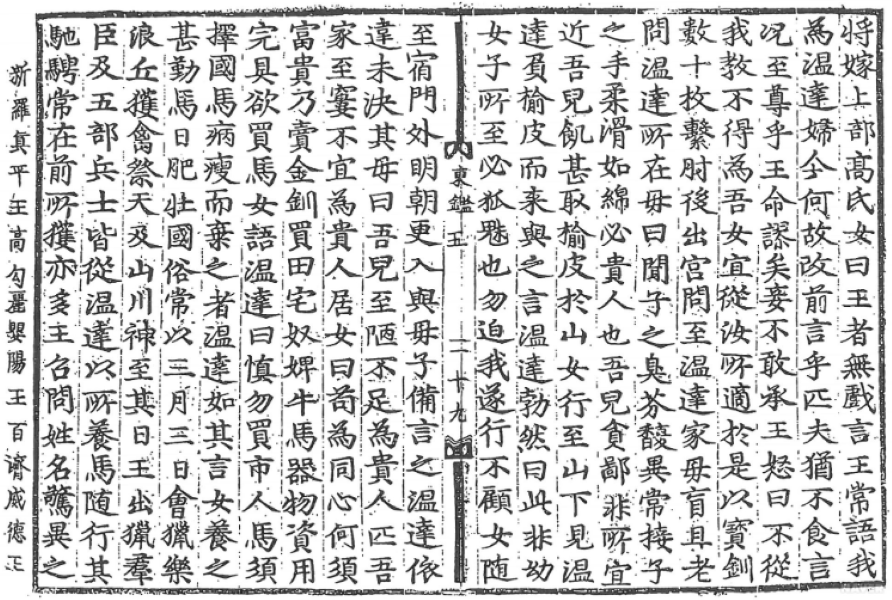 將嫁上部高氏女曰王者無戲言王常語我
為溫達婦今何故改前言乎匹夫猶不食言
况至尊乎王命謬矣妾不敢承王怒曰不從
我敎不得為吾女宜從汝所適於是以寶釧
數十枚繫肘後出宮問至溫達家母盲且老
問溫達所在母曰聞子之臭芬馥異常接子
之手柔滑如綿必貴人也吾兒貪鄙非所宜
近吾兒飢甚取楡皮於山女行至山下見溫
達負楡皮而來與之言溫達勃然曰此非幼
女子所至必狐魅也勿迫我遂行不顧女随
東鑑五
二十九
至宿門外明朝更入與母子備言之溫達依
違未決其母曰吾兒至陋不足為貴人匹吾
家至窶不宜為貴人居女曰苟為同心何須
富貴乃賣金釧買田宅奴婢牛馬器物資用
完具欲買馬女語溫達曰慎勿買市人馬須
擇國馬病瘦而棄之者溫達如其言女養之
甚勤馬日肥壮國俗常以三月三日會獵樂
浪丘獲禽祭天及山川神至其日王出獵羣
臣及五部兵士皆從溫達以所養馬随行其
馳騁常在前所獲亦多王召問姓名驚異之
新羅眞平王高句麗嬰陽王百濟威德王